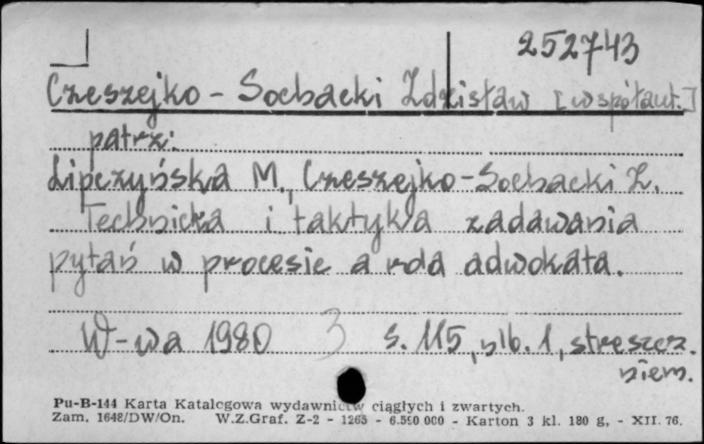 252743
Czeszejko-Sochacki Zdzisław [współaut.]
patrz:
Lipczyńska M., Czeszejko-Sochacki Z.
Technika i taktyka zadawania
pytań w procesie a rola adwokata.
W-wa 1980 3 s. 115, nlb. 1, streszcz.
niem.
Pu-B-144 Karta Katalogowa wydawnictw ciągłych i zwartych.
Zam. 1648/DW/On. W.Z.Graf. Z-2 - 1265 - 6.590 000 - Karton 3 kl. 180 g, - XII. 76.